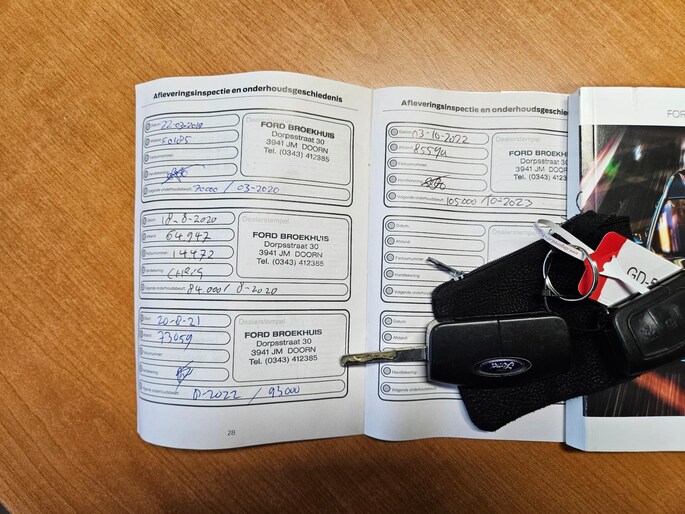 Afleveringsinspectie en onderhoudsgeschiedenis
Datum 22-03-2019
50485
FORD BROEKHUIS
Dorpsstraat 30
3941 JM DOORN
Tel. (0343) 412385
Volgende onderhoudsbeurt 70000 / 03-2020
Datum 18-8-2020
Afstand 64.947
Factuurnummer 14472
Handtekening CHRIS
Volgende onderhoudsbeurt 84.000/ 8-2020
Dealerstempel
FORD BROEKHUIS
Dorpsstraat 30
3941 JM DOORN
Tel. (0343) 412385
Datum 20-8-21
Afstand 73059
Factuurnummer
Handtekening
Volgende onderhoudsbeurt 8-2022 / 93000
FORD BROEKHUIS
Dorpsstraat 30
3941 JM DOORN
Tel. (0343) 412385
28
Afleveringsinspectie en onderhoudsgeschie
Datum 03-10-2022
Afstand
Factuurnummer
Handtekening
Volgende onderhoudsbeurt 105000 / 10-2023
Dealerstempel
FORD BROEKHUIS
Dorpsstraat 30
3941 JM DOORN
Tel. (0343) 412385
Datum
Afstand
Factuurnummer
Handtekening
Volgende onderhoudsbeurt
Datum
Afstand
Handtekening
Volgende onderhoudsbeurt
FOR
GD-5
Ford